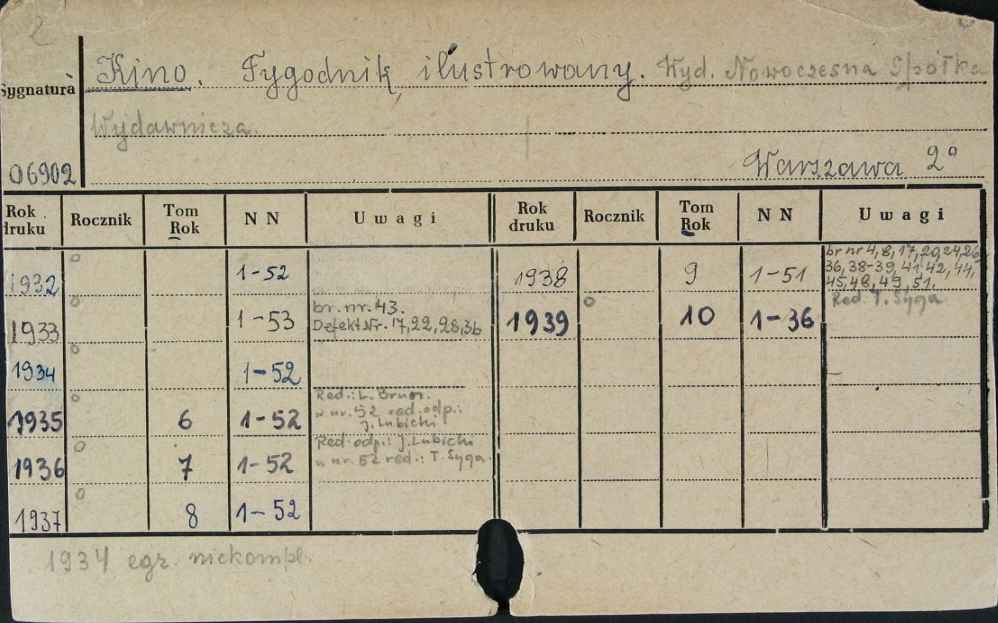 2
Kino. Tygodnik ilustrowany. Wyd. Nowoczesna Spółka
Sygnatura
Wydawnicza.
06902
Warszawa 2°
Rok druku Rocznik Tom Rok NN Uwagi Rok druku Rocznik Tom Rok NN Uwagi
1932 1-52
1933 1-53 br. nr. 43.
Defekt Nr. 17,22,28,36
1934 1-52
1935 6 1-52 Red.: L. Brun.
w nr. 52 red. odp.:
J. Lubicki
1936 7 1-52 Red. odp.: J. Lubicki
w nr. 52 red.: T. Syga.
1937 8 1-52
1938 9 1-51 br nr 4, 8, 17, 20, 24, 26
36, 38-39, 41-42, 44,
45, 48, 49, 51.
1939 10 1-36 Red. T. Syga
1934 egz. niekompl.